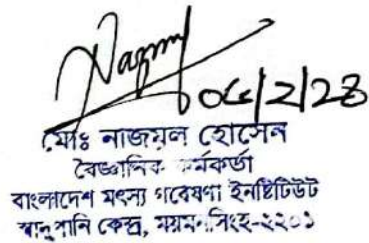 Nazmul
06/2/23
মোঃ নাজমুল হোসেন
বৈজ্ঞানিক কর্মকর্তা
বাংলাদেশ মৎস্য গবেষণা ইনষ্টিটিউট
স্বাদুপানি কেন্দ্র, ময়মনসিংহ-২২০১